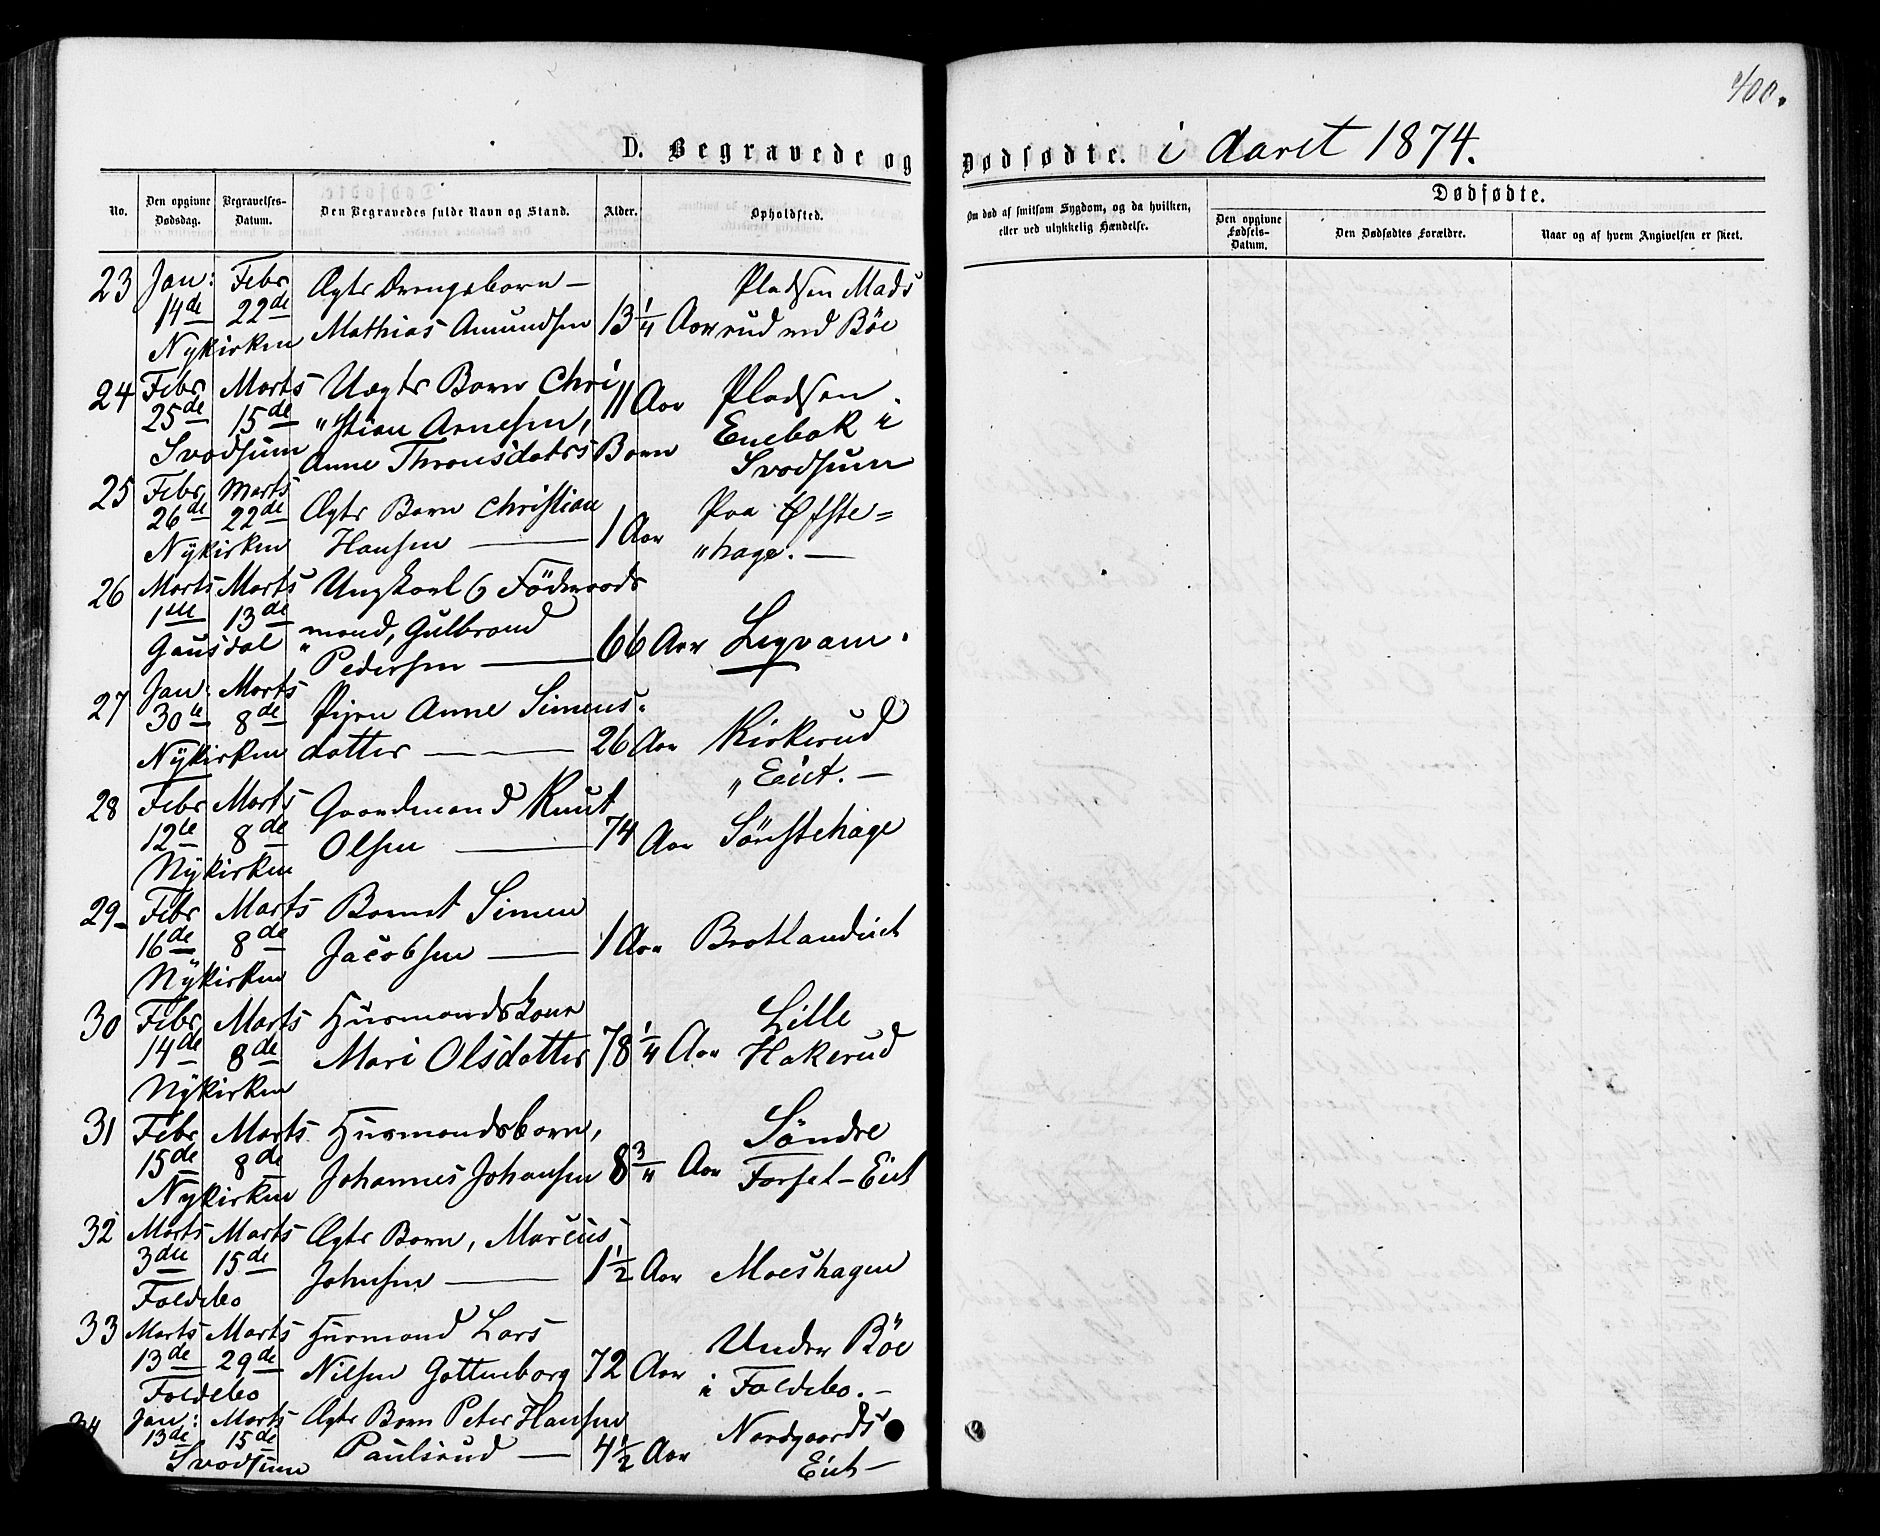 400.
D. Begravede og Dødfødte. i Aaret 1874.
No. Den opgivne Dødsdag. Begravelses-Datum. Den Begravedes fulde Navn og Stand. Alder. Opholdsted.
Om død af smitsom Sygdom, og da hvilken, eller ved ulykkelig Hændelse.
Dødfødte.
Den opgivne Fødsels-Datum. Den Dødfødtes Forældre. Naar og af hvem Angivelsen er skeet.
23 Jan: Febr Ægte Drengebarn — Pladsen Mads
14de 22de Mathias Amundsen 13 1/4 Aar rud ved Böe
Nykirken
24 Febr Marts Uægte Barn Chri 11 Aar Pladsen
25de 15de "stian Arnesen, Enebak i
Svadsum Anne Thronsdatrs Barn Svadsum
25 Febr Marts Ægte Barn Christian Paa Öfste=
26de 22de Hansen — 1 Aar "hage. —
Nykirken
26 Marts Marts Ungkarl & Föderaads
1ste 13de "mand, Gulbrand 66 Aar
Gausdal Pedersen —
27 Jan: Marts Pigen Anne Simens-
30te 8de datter — 26 Aar Kirkerud
Nÿkirken "Eiet. —
28 Febr Marts Gaardmand Knut 74 Aar Sönstehage
12te 8de Olsen —
Nÿkirken
29- Febr Marts Barnet Simen
16de 8de Jacobsen — 1 Aar Brotlandeiet
Nÿkirken
30 Febr Marts Husmandskone Lille
14de 8de Mari Olsdatter 78 1/4 Aar Hakerud
Nÿkirken
31 Febr Marts Husmandsbarn, Söndre
15de 8de Johannes Johansen 8 3/4 Aar Forset-Eiet
Nykirken
32 Marts Marts Ægte Barn, Marcus
3die 15de Johnsen — 1 1/2 Aar Moeshagen
Foldebo
33 Marts Marts Husmand Lars Under Böe
13de 29de Nilsen Gottenborg 72 Aar i Foldebo. —
Foldebo
34 Jan: Marts Ægte Barn Peter Hansen Nordgaards
13de 15de Paulsrud — 4 1/2 Aar Eiet —
Svadsum